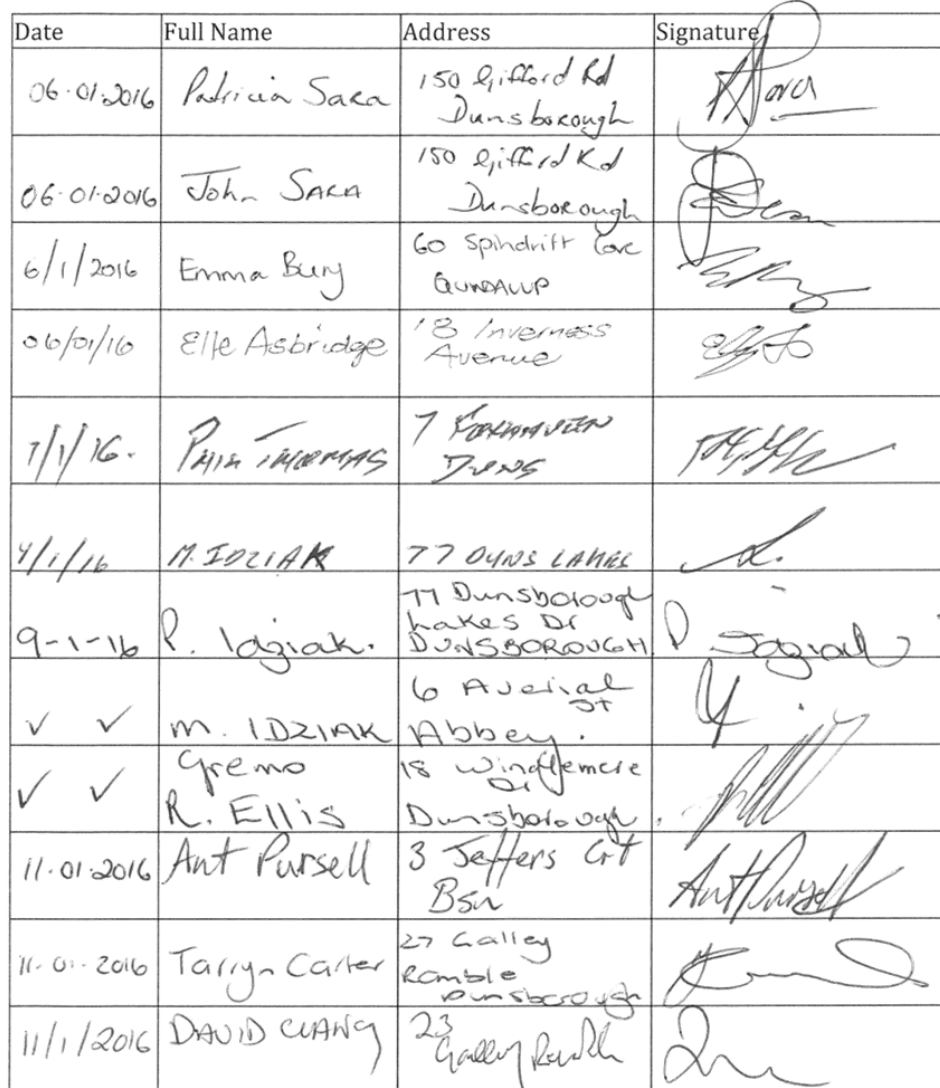 Date Full Name Address Signature
06-01-2016 Patricia Sara 150 Gifford Rd
Dunsborough
06-01-2016 John SARA 150 Gifford Rd
Dunsborough
6/1/2016 Emma Bury 60 Spindrift Cove
QUINDALUP
06/01/16 Elle Asbridge 18 Inverness
Avenue
7/1/16. PHIL THOMAS 7
DUNS
M. IDZIAK 77 DUNS LAKES
9-1-16 P. Idziak. 77 Dunsborough
Lakes Dr
DUNSBOROUGH P Idziak
✓ ✓ M. IDZIAK 6
St
Abbey.
✓ ✓ Gremo
R. Ellis 18 Windlemere
Dr
Dunsborough.
11-01-2016 Ant Pursell 3 Jeffers Crt
Bsn Ant Pursell
11-01-2016 Tarryn Carter 27 Galley
Ramble
Dunsborough
11/1/2016 DAVID 23
Galley